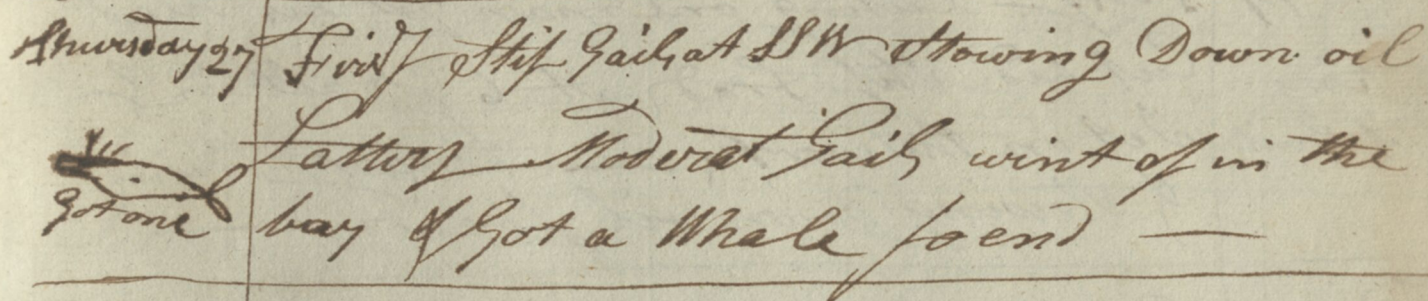 Thursday 27 First Stif Gails at SSW Stowing Down oil
Latters Moderat Gails wint of in the
Got one bay & Got a Whale so end —